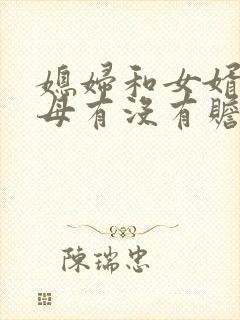 媳婦和女婿
母有沒有贍
陳瑞忠